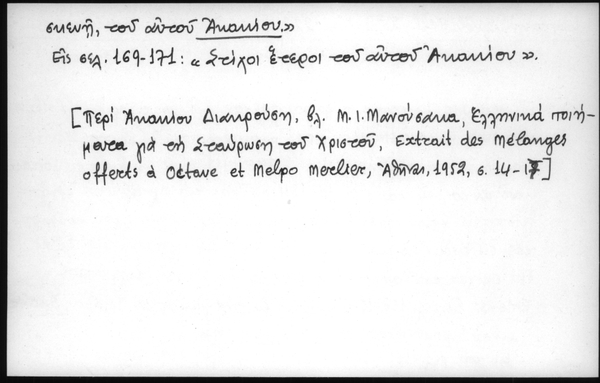 σκευῆ, τοῦ αὐτοῦ Ἀκακίου.»
Εἰς σελ. 169-171: «Στίχοι ἕτεροι τοῦ αὐτοῦ Ἀκακίου».
[Περί Ἀκακίου Διακρούση, βλ. Μ. Ι. Μανούσακα, Ἑλληνικά ποιή-
ματα γιά τή Σταύρωση τοῦ Χριστοῦ, Extrait des Mélanges
offerts à Octave et Melpo Merlier, Ἀθῆναι, 1952, σ. 14-17]